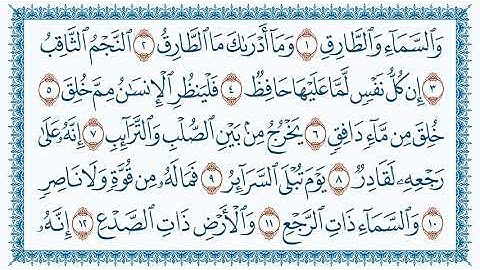 وَٱلسَّمَآءِ وَٱلطَّارِقِ ١ وَمَآ أَدۡرَىٰكَ مَا ٱلطَّارِقُ ٢ ٱلنَّجۡمُ ٱلثَّاقِبُ
٣ إِن كُلُّ نَفۡسٖ لَّمَّا عَلَيۡهَا حَافِظٞ ٤ فَلۡيَنظُرِ ٱلۡإِنسَٰنُ مِمَّ خُلِقَ ٥
خُلِقَ مِن مَّآءٖ دَافِقٖ ٦ يَخۡرُجُ مِنۢ بَيۡنِ ٱلصُّلۡبِ وَٱلتَّرَآئِبِ ٧ إِنَّهُۥ عَلَىٰ
رَجۡعِهِۦ لَقَادِرٞ ٨ يَوۡمَ تُبۡلَى ٱلسَّرَآئِرُ ٩ فَمَا لَهُۥ مِن قُوَّةٖ وَلَا نَاصِرٖ
١٠ وَٱلسَّمَآءِ ذَاتِ ٱلرَّجۡعِ ١١ وَٱلۡأَرۡضِ ذَاتِ ٱلصَّدۡعِ ١٢ إِنَّهُۥ